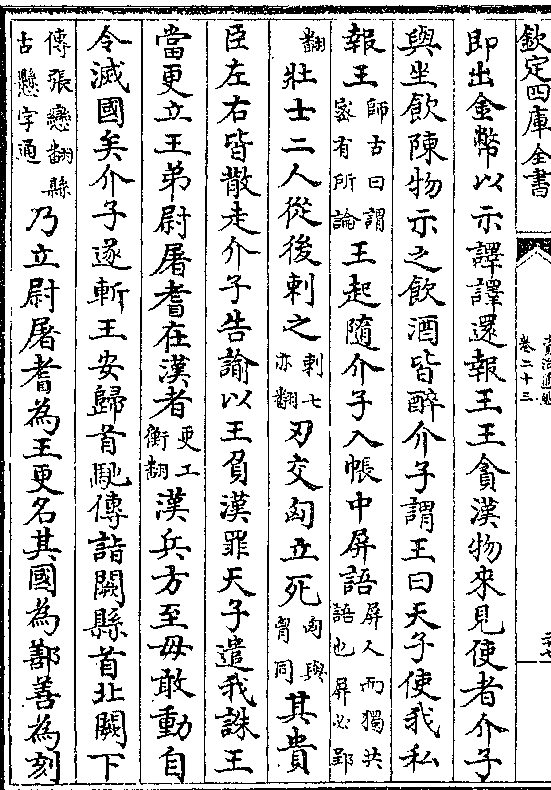 欽定四庫全書
資治通鑑
卷二十三
即出金幣以示譯譯還報王王貪漢物來見使者介子
與坐飲陳物示之飲酒皆醉介子謂王曰天子使我私
報王師古曰謂密有所論王起隨介子入帳中屏語屏人而獨共語也屏必郢
翻壯士二人從後刺之刺七亦翻刃交匈立死匈與胷同其貴
臣左右皆散走介子告諭以王負漢罪天子遣我誅王
當更立王弟尉屠耆在漢者更工衡翻漢兵方至毋敢動自
令滅國矣介子遂斬王安歸首馳傳詣闕縣首北闕下
傳張戀翻縣古懸字通乃立尉屠耆為王更名其國為鄯善為刻